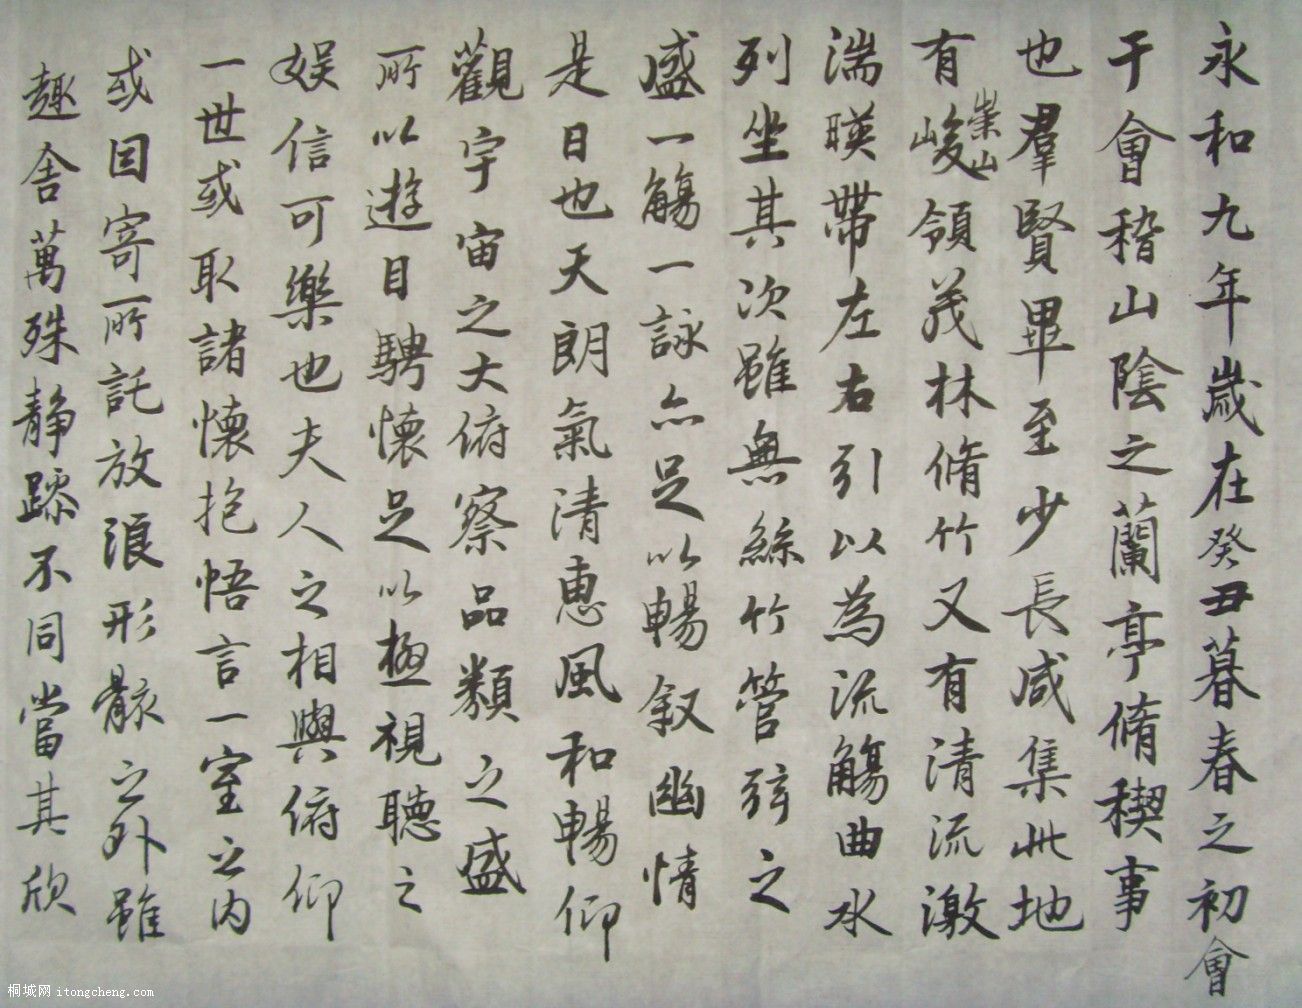 永和九年歲在癸丑暮春之初會
于會稽山陰之蘭亭脩稧事
也羣賢畢至少長咸集此地
有崇山峻領茂林脩竹又有清流激
湍暎帶左右引以為流觴曲水
列坐其次雖無絲竹管弦之
盛一觴一詠亦足以暢叙幽情
是日也天朗氣清惠風和暢仰
觀宇宙之大俯察品類之盛
所以遊目騁懷足以極視聽之
娛信可樂也夫人之相與俯仰
一世或取諸懷抱悟言一室之內
或因寄所託放浪形骸之外雖
趣舍萬殊静躁不同當其欣
桐城网 itongcheng.com